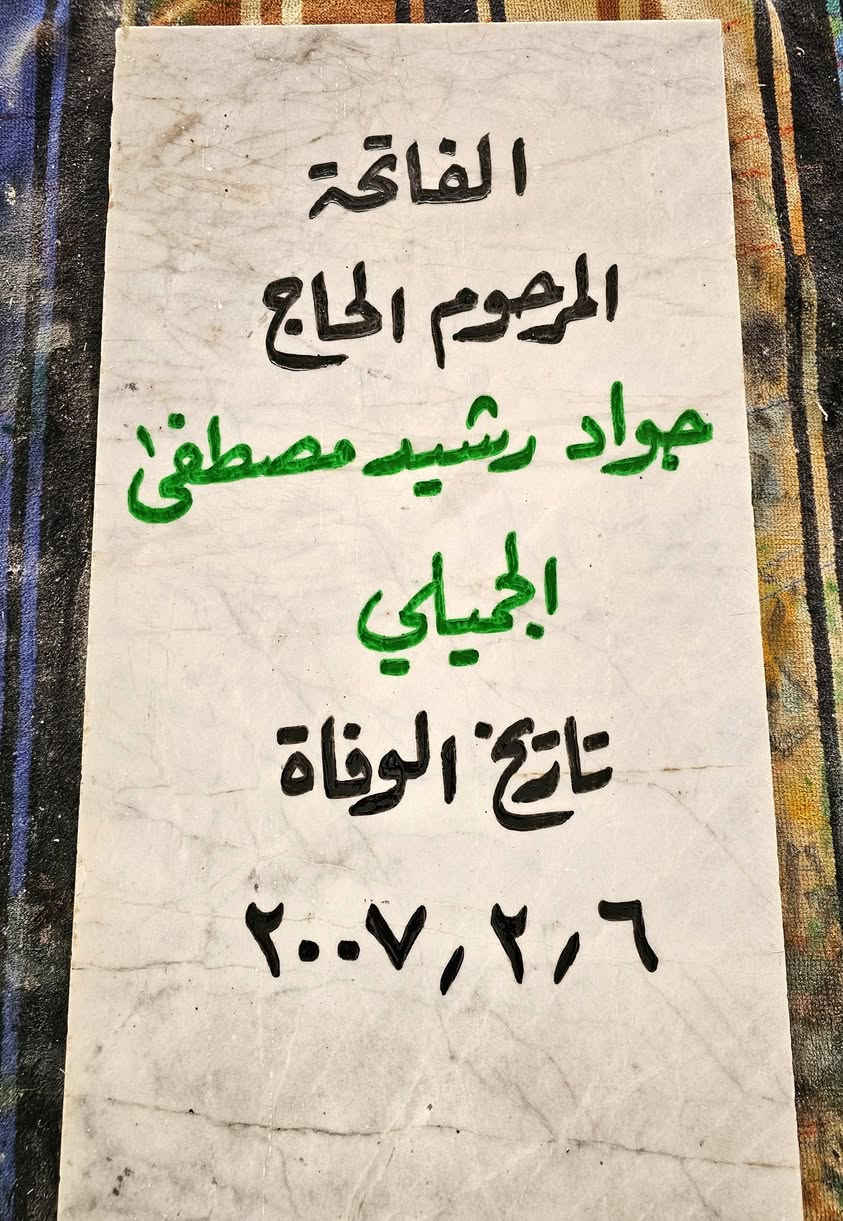 الفاتحة
المرحوم الحاج
جواد رشيد مصطفى
الجميلي
تاريخ الوفاة
٦/٢/٢٠٠٧